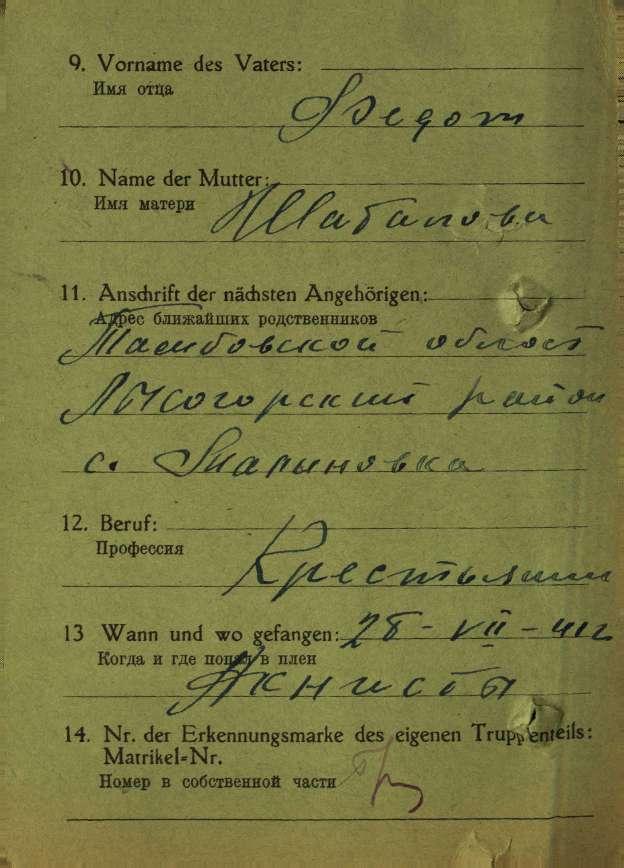 9. Vorname des Vaters:
Имя отца
Федот
10. Name der Mutter:
Имя матери
Шабанова
11. Anschrift der nächsten Angehörigen:
Адрес ближайших родственников
Тамбовской област
Лысогорский район
с.
12. Beruf:
Профессия
Крестьянин
13 Wann und wo gefangen: 28-VII-41г
Когда и где попал в плен
Акнисты
14. Nr. der Erkennungsmarke des eigenen Truppenteils:
Matrikel=Nr.
Номер в собственной части